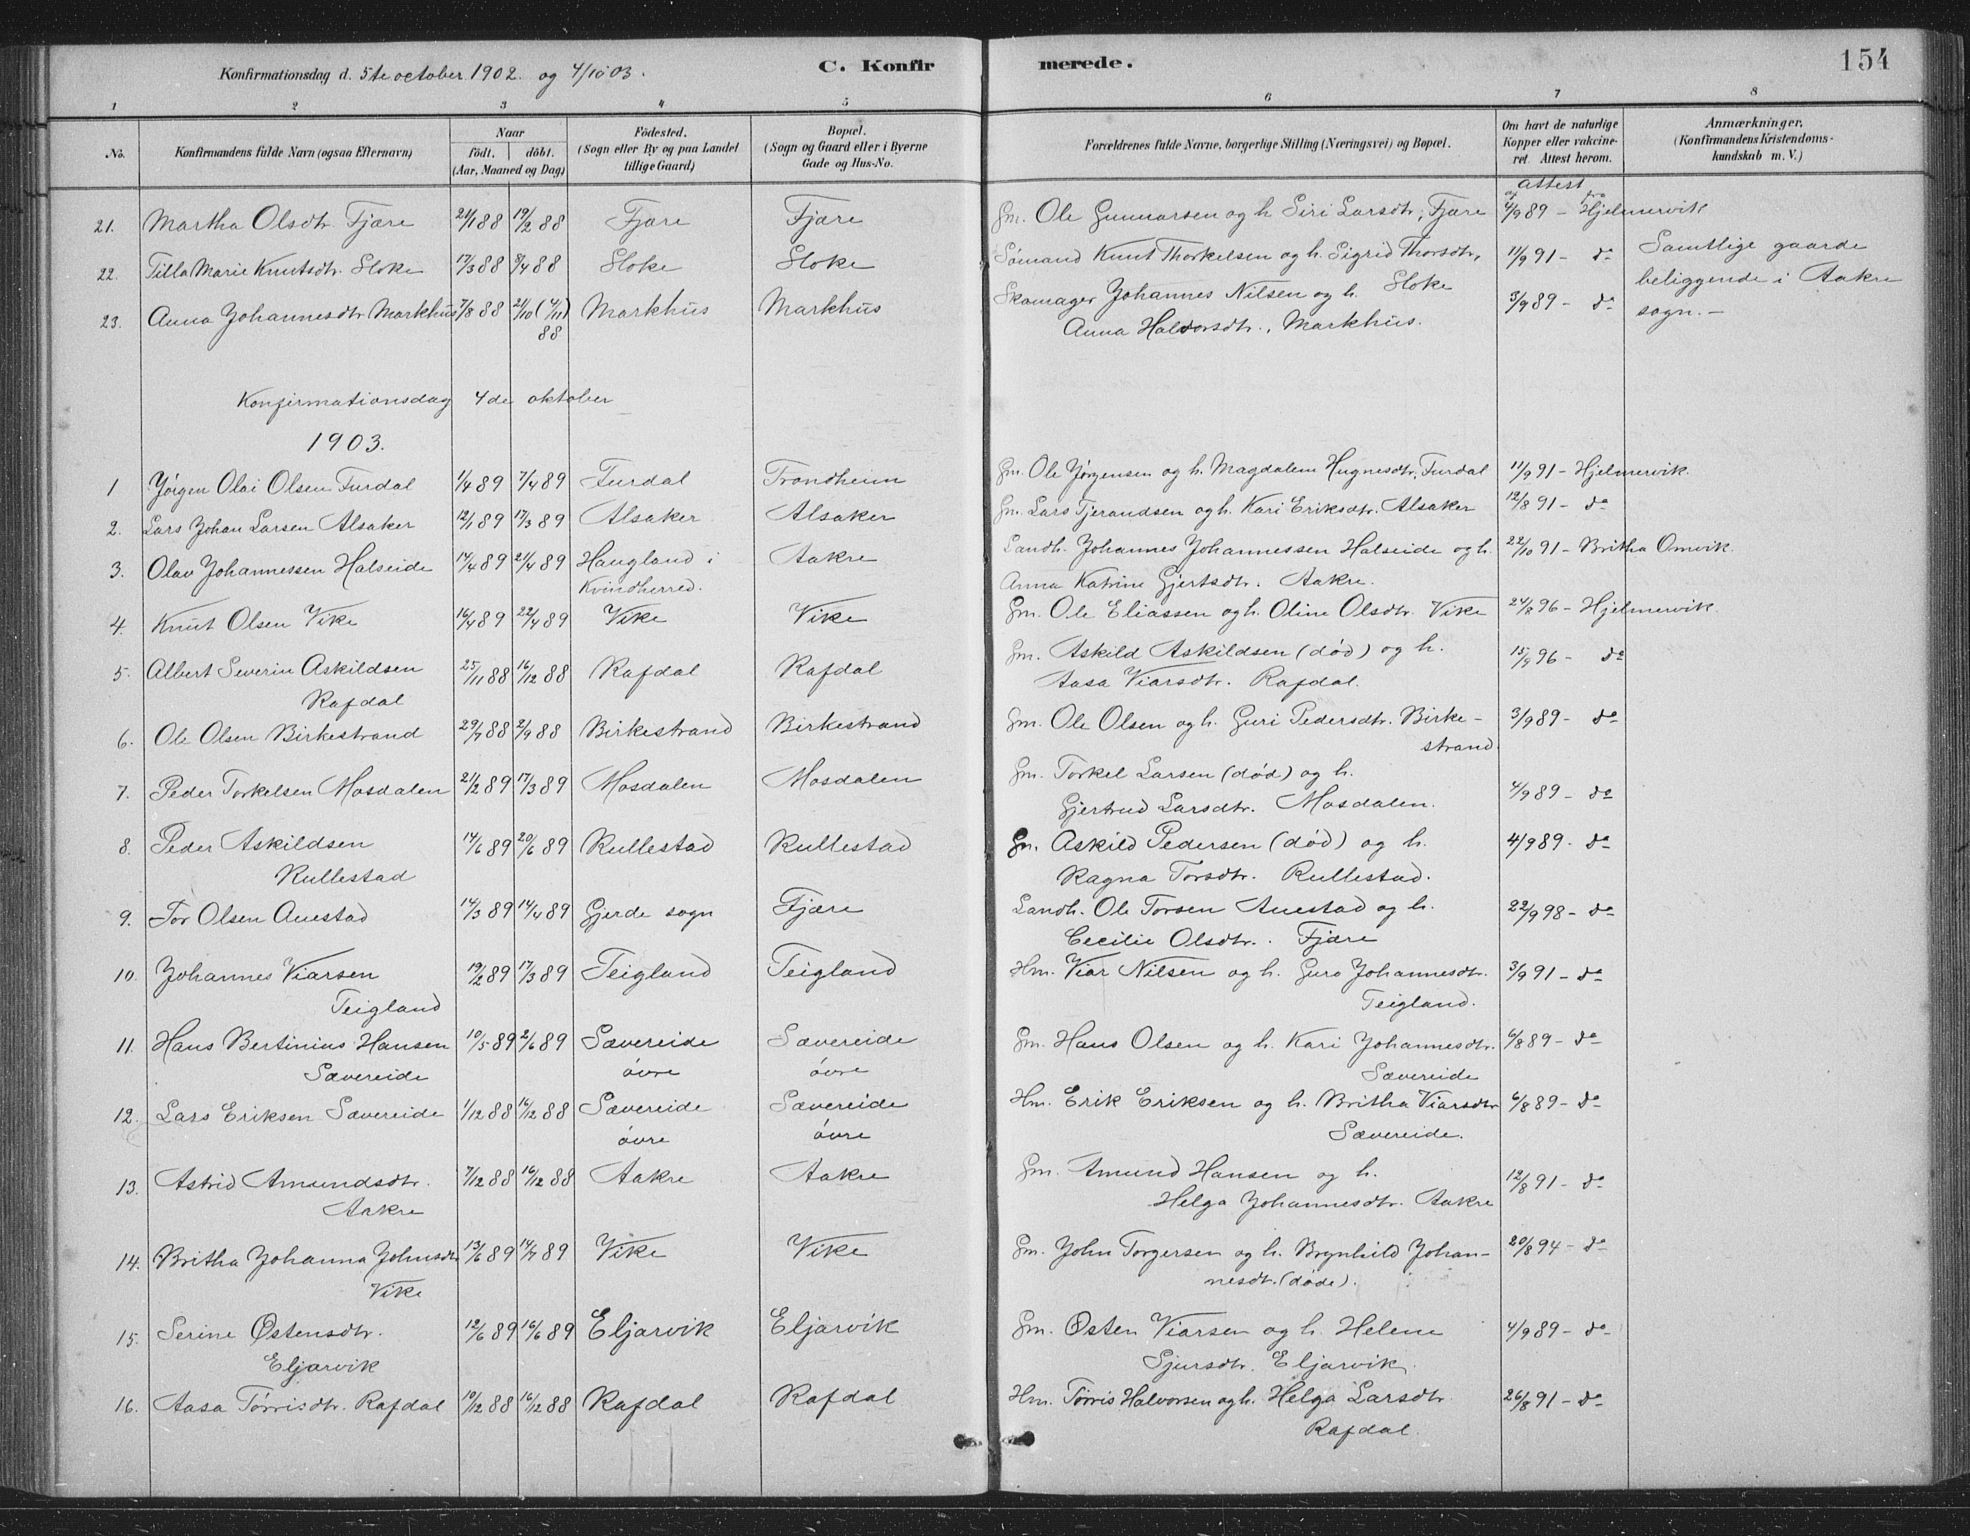 Konfirmationsdag d. 5te october 1902. og 4/10 03.
C. Konfirmerede.
154
1 2 3 4 5 6 7 8
No.
Konfirmandens fulde Navn (ogsaa Efternavn)
Naar
födt. döbt.
(Aar, Maaned og Dag)
Födested.
(Sogn eller By og paa Landet
tillige Gaard)
Bopæl.
(Sogn og Gaard eller i Byerne
Gade og Hus-No.
Forældrenes fulde Navne, borgerlige Stilling (Næringsvei) og Bopæl.
Om havt de naturlige
Kopper eller vakcine-
ret. Attest herom.
Anmærkninger.
(Konfirmandens Kristendoms-
kundskab m. V.)
attest
21. Martha Olsdtr. Fjære 21/1 88 19/2 88 Fjære Fjære Gm. Ole Gunnarsen og h. Siri Larsdtr., Fjære 4/9 89 - Hjelmervik
22. Tilla Marie Knutsdtr. Sloke 17/3 88 8/4 88 Sloke Sloke Sömand Knut Thorkelsen og h. Sigrid Thorsdtr., Sloke 11/9 91 - do
Samtlige gaarde
beliggende i Aakre
sogn. -
23. Anna Johannesdtr Markhus 7/8 88 21/10 (4/11) 88 Markhus Markhus Skomager Johannes Nilsen og h.
Anna Haldorsdtr., Markhus. 3/9 89 - do
Konfirmationsdag 4de oktober
1903.
1 Jörgen Olai Olsen Furdal 1/4 89 7/4 89 Furdal Trondheim Gm. Ole Jørgensen og h. Magdalena Hugnesdtr. Furdal 11/9 91 - Hjelmervik
2. Lars Johan Larsen Alsaker 12/1 89 17/3 89 Alsaker Alsaker Gm. Lars Tjerandsen og h. Kari Eriksdtr. Alsaker 12/8 91 - do
3. Olav Johannessen Halseide 14/4 89 21/4 89 Haugland i
Kvindherred. Aakre Landh. Johannes Johannessen Halseide og h.
Anna Katrine Gjertsdtr. Aakre. 22/10 91 - Britha Omvik.
4. Knut Olsen Vike 16/4 89 22/4 89 Vike Vike Gm. Ole Eliassen og h. Oline Olsdtr. Vike 24/8 96 - Hjelmervik
5. Albert Severin Askildsen
Rafdal 25/11 88 16/12 88 Rafdal Rafdal Gm. Askild Askildsen (död) og h.
Aasa Viarsdtr. Rafdal. 15/9 96 - do
6. Ole Olsen Birkestrand 29/7 88 2/9 88 Birkestrand Birkestrand Gm. Ole Olsen og h. Guri Pedersdtr. Birke-
strand. 3/9 89 - do
7. Peder Torkelsen Mosdalen 21/2 89 17/3 89 Mosdalen Mosdalen Gm. Torkel Larsen (död) og h.
Gjertrud Larsdtr. Mosdalen. 4/9 89 - do
8. Peder Askildsen
Rullestad 14/6 89 20/6 89 Rullestad Rullestad Gm. Askild Pedersen (död) og h.
Ragna Torsdtr. Rullestad. 4/9 89 - do
9. Tor Olsen Auestad 14/3 89 14/4 89 Gjerde sogn Fjære Landh. Ole Torsen Auestad og h.
Cecilie Olsdtr. Fjære 22/9 98 - do
10. Johannes Viarsen
Teigland 19/2 89 17/3 89 Teigland Teigland Hm. Viar Nilsen og h. Guro Johannesdtr.
Teigland. 3/9 91 - do
11. Hans Bertinius Hansen
Sævereide 10/5 89 2/6 89 Sævereide
övre Sævereide
övre Gm. Hans Olsen og h. Kari Johannesdtr.
Sævereide 6/8 89 - do
12. Lars Eriksen Sævereide 1/12 88 16/12 88 Sævereide
övre Sævereide
övre Hm. Erik Eriksen og h. Britha Viarsdtr
Sævereide. 6/8 89 - do
13. Astrid Amundsdtr.
Aakre 7/12 88 16/12 88 Aakre Aakre Gm. Amund Hansen og h.
Helga Johannesdtr. Aakre 12/8 91 - do
14. Britha Johanna Johnsdtr
Vike 13/6 89 14/7 89 Vike Vike Gm. John Torgersen og h. Brynhild Johan-
nesdt. (döde). 20/8 94 - do
15. Serine Østensdtr.
Eljarvik 12/6 89 16/6 89 Eljarvik Eljarvik Gm. Østen Viarsen og h. Helene
Sjursdtr. Eljarvik. 4/9 89 - do
16. Aasa Tørrisdtr. Rafdal 10/12 88 16/12 88 Rafdal Rafdal Hm. Tørris Halvorsen og h. Helga Larsdtr
Rafdal. 26/8 91 - do